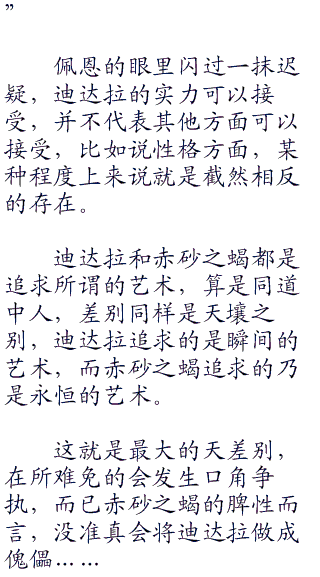 ”
佩恩的眼里闪过一抹迟
疑，迪达拉的实力可以接
受，并不代表其他方面可以
接受，比如说性格方面，某
种程度上来说就是截然相反
的存在。
迪达拉和赤砂之蝎都是
追求所谓的艺术，算是同道
中人，差别同样是天壤之
别，迪达拉追求的是瞬间的
艺术，而赤砂之蝎追求的乃
是永恒的艺术。
这就是最大的天差别，
在所难免的会发生口角争
执，而已赤砂之蝎的脾性而
言，没准真会将迪达拉做成
傀儡……